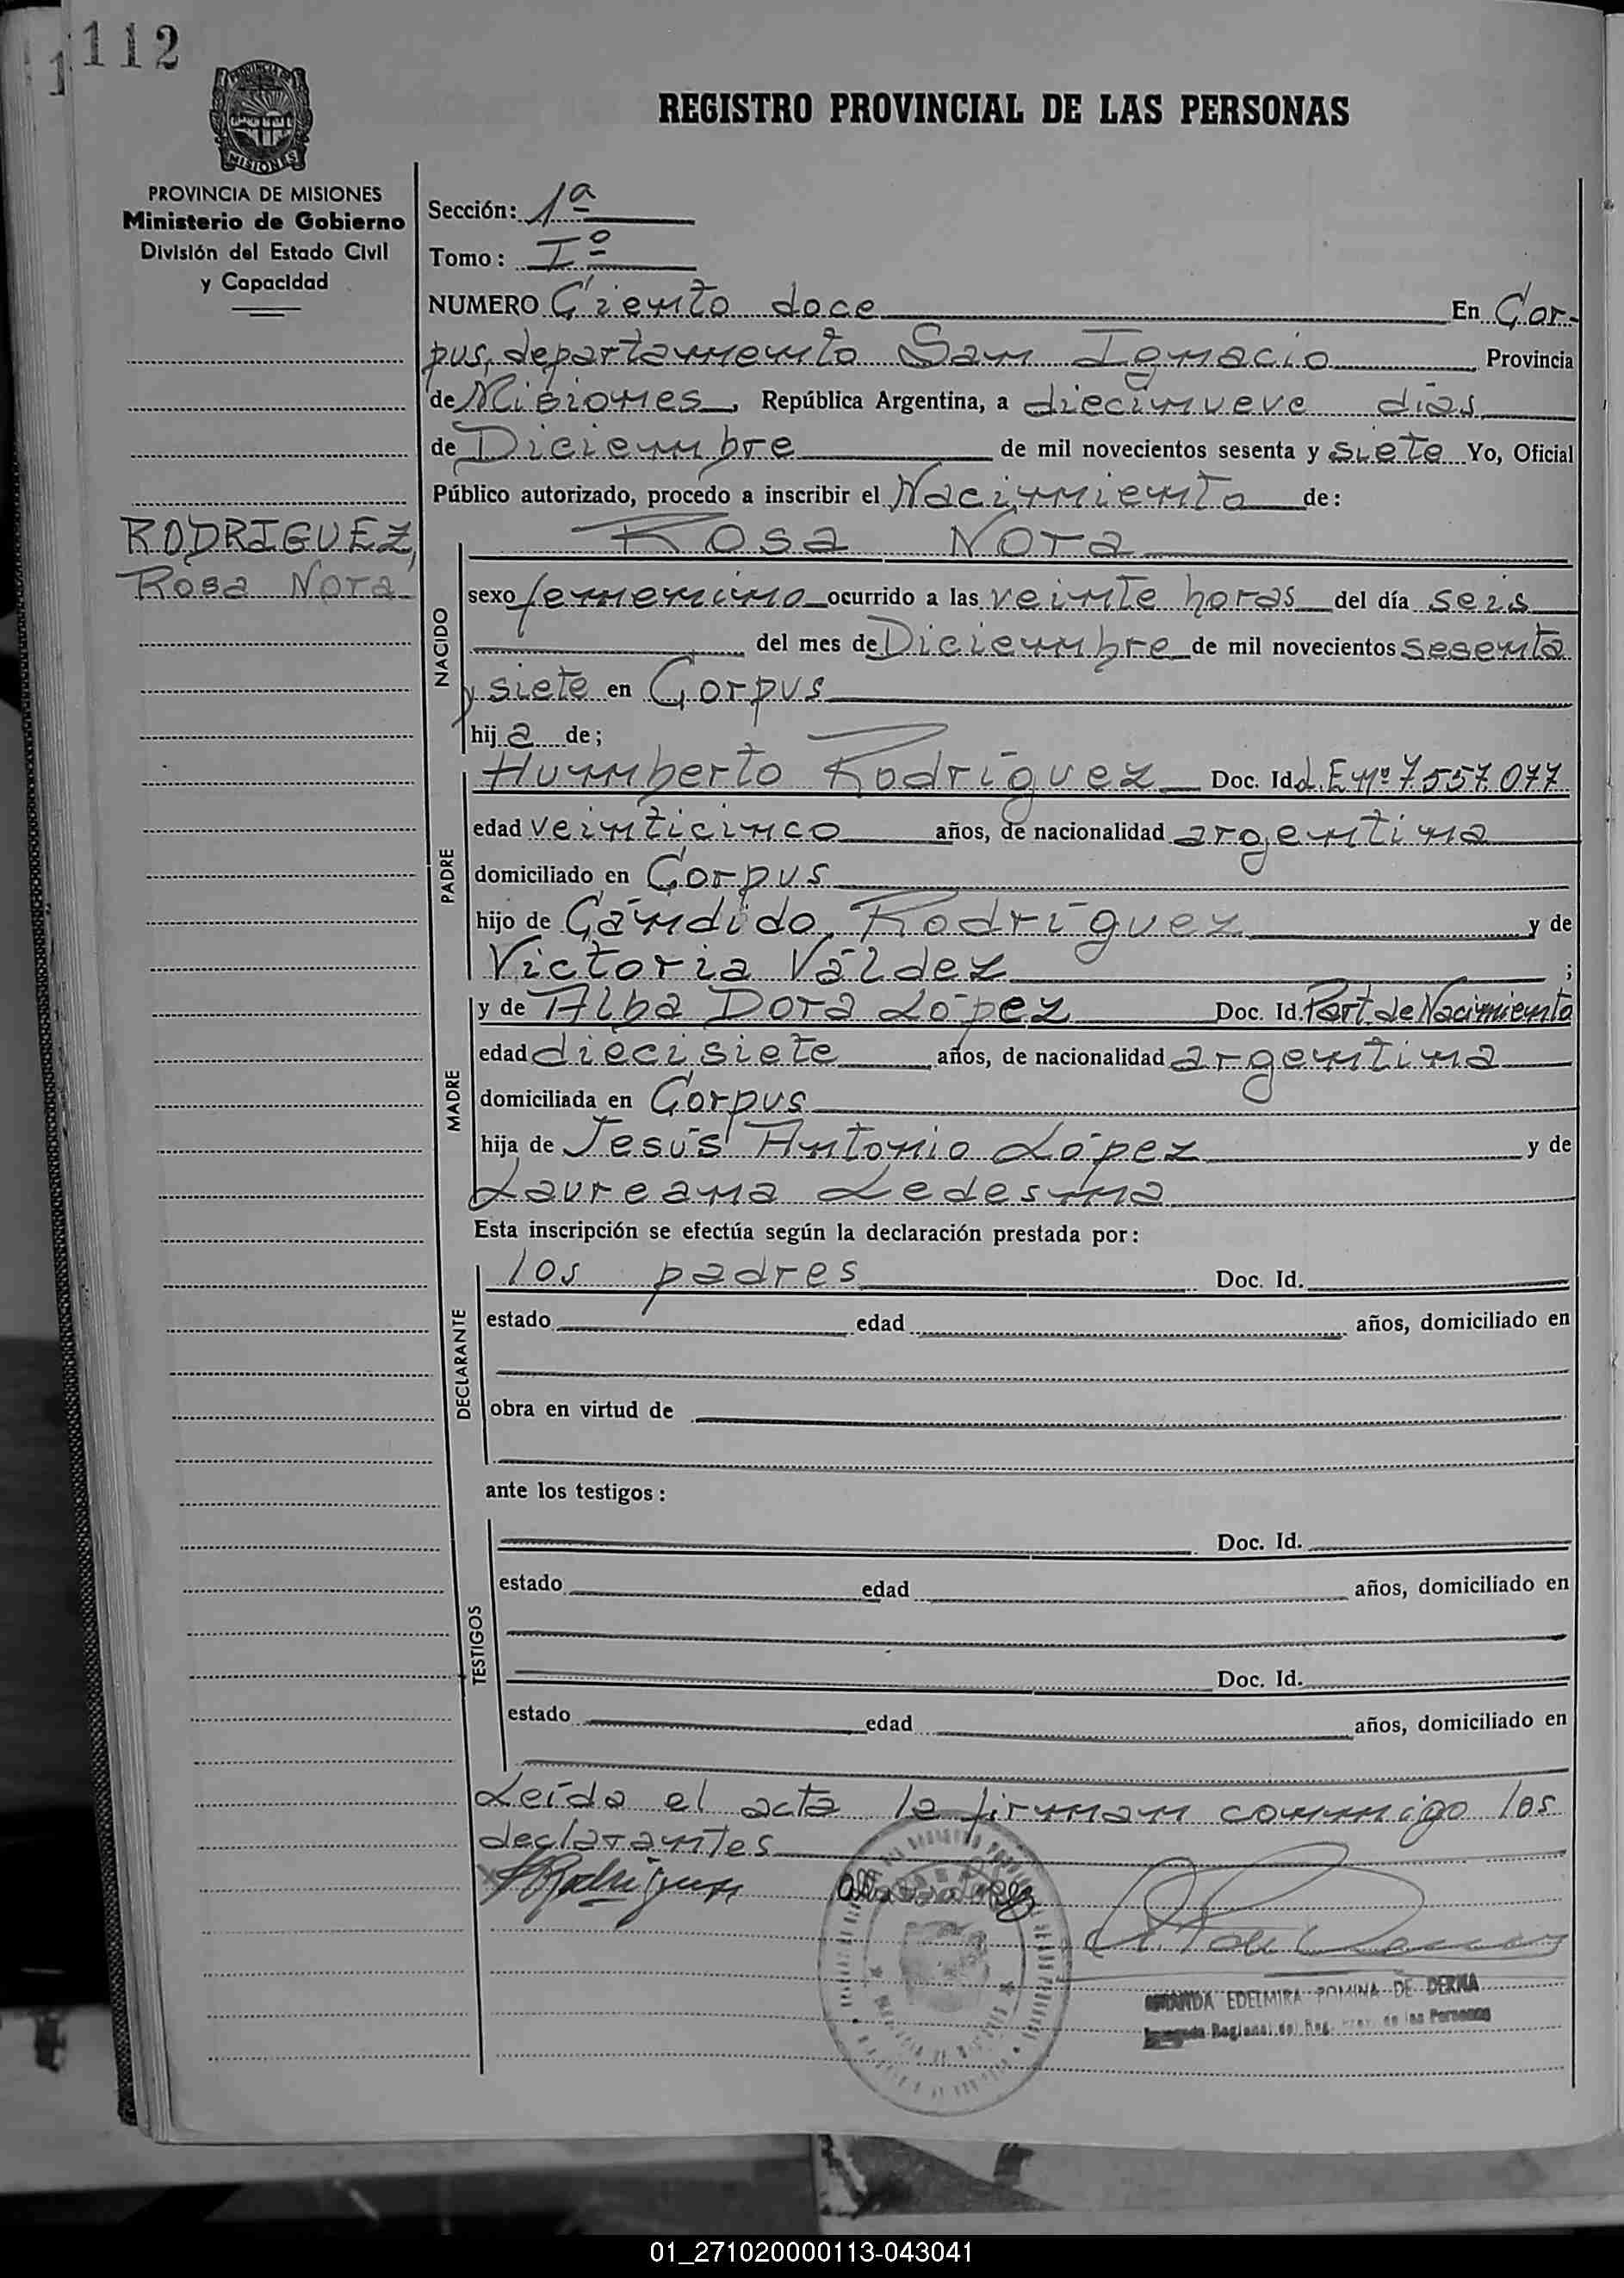 112
1
PROVINCIA DE
MISIONES
REGISTRO PROVINCIAL DE LAS PERSONAS
PROVINCIA DE MISIONES
Ministerio de Gobierno
División del Estado Civil
y Capacidad
RODRIGUEZ,
Rosa Nora
Sección: 1ª
Tomo: Iº
NUMERO Ciento doce En Cor-
pus, departamento San Ignacio Provincia
de Misiones, República Argentina, a diecinueve días
de Diciembre de mil novecientos sesenta y siete Yo, Oficial
Público autorizado, procedo a inscribir el Nacimiento de:
NACIDO
Rosa Nora
sexo femenino ocurrido a las veinte horas del día seis
del mes de Diciembre de mil novecientos sesenta
y siete en Corpus
hija de;
PADRE
Humberto Rodríguez Doc. Id L.E nº 7.557.077
edad veinticinco años, de nacionalidad argentina
domiciliado en Corpus
hijo de Cándido Rodríguez y de
Victoria Váldez ;
MADRE
y de Alba Dora López Doc. Id. Part. de Nacimiento
edad diecisiete años, de nacionalidad argentina
domiciliada en Corpus
hija de Jesús Antonio López y de
Laureana Ledesma
Esta inscripción se efectúa según la declaración prestada por:
DECLARANTE
los padres Doc. Id.
estado edad años, domiciliado en
obra en virtud de
ante los testigos:
TESTIGOS
Doc. Id.
estado edad años, domiciliado en
Doc. Id.
estado edad años, domiciliado en
Leída el acta la firman conmigo los
declarantes
HRodriguez
EDELMIRA ROMINA DE DERNA
Regional del Reg. de las Personas
01_271020000113-043041